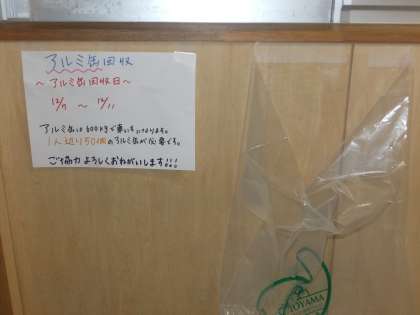 アルミ缶回収
～アルミ缶回収日～
12/7 ～ 12/11
アルミ缶は600kgで車いす1つになります。
1人辺り50個のアルミ缶が必要です。
ご協力よろしくおねがいします!!!